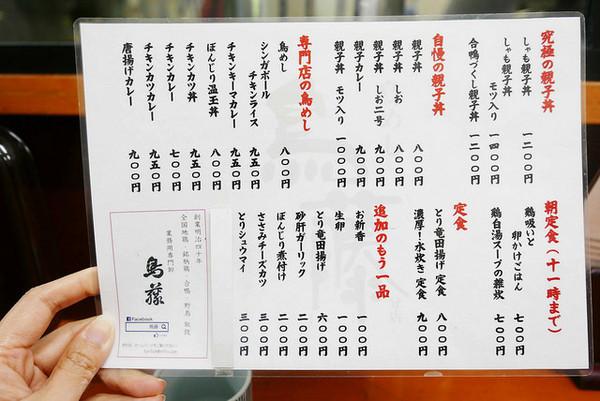 究極の親子丼
しゃも親子丼 一二〇〇円
しゃも親子丼 モツ入り 一四〇〇円
合鴨づくし親子丼 一二〇〇円
自慢の親子丼
親子丼 八〇〇円
親子丼 しお 八〇〇円
親子丼 しお二号 九〇〇円
親子カレー 九〇〇円
親子丼 モツ入り 一〇〇〇円
専門店の鳥めし
鳥めし 八〇〇円
シンガポール
チキンライス 九五〇円
チキンキーマカレー 九五〇円
ぼんじり温玉丼 八〇〇円
チキンカツ丼 九五〇円
チキンカレー 七〇〇円
チキンカツカレー 九五〇円
唐揚げカレー 九〇〇円
朝定食(十一時まで)
鶏吸いと
卵かけごはん 七〇〇円
鶏白湯スープの雑炊 七〇〇円
定食
とり竜田揚げ 定食 八〇〇円
濃厚!水炊き 定食 九〇〇円
追加のもう一品
お新香 一〇〇円
生卵 一〇〇円
とり竜田揚げ 六〇〇円
砂肝ガーリック 二〇〇円
ぼんじり煮付け 二〇〇円
ささみチーズカツ 三〇〇円
とりシュウマイ 三〇〇円
創業明治四十年
全国地鶏・銘柄鶏・合鴨・野鳥 卸
業務用専門卸
鳥藤
Facebook
鳥藤